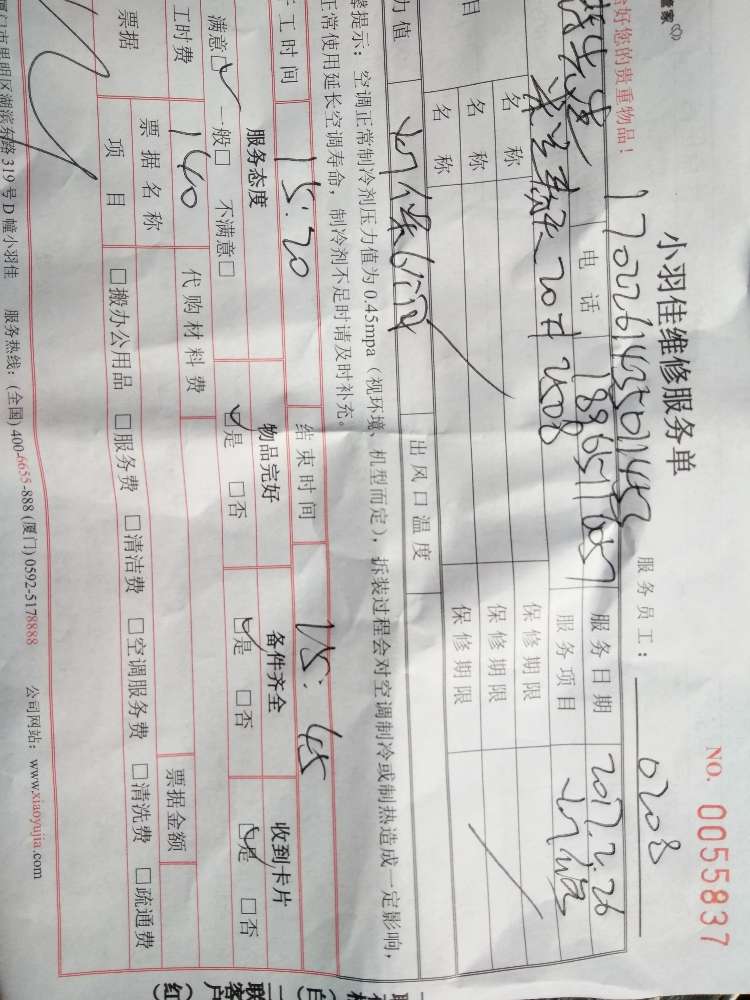 管家
NO. 0055837
小羽佳维修服务单
好您的贵重物品！
服务员工： 0208
电话
服务日期 2017.2.26
目
20# 2508
服务项目
名称 保修期限
名称 保修期限
名称 保修期限
力值
出风口温度
提示：空调正常制冷剂压力值为0.45mpa（视环境、机型而定），拆装过程会对空调制冷或制热造成一定影响，
正常使用延长空调寿命，制冷剂不足时请及时补充。
工时间 15:20 结束时间 15:45
服务态度 物品完好 备件齐全 收到卡片
满意☑ 一般□ 不满意□ ☑是 □否 ☑是 □否 ☑是 □否
工时费 140 代购材料费
票据 票据名称 票据金额
项目 □搬办公用品 □服务费 □清洁费 □空调服务费 □清洗费 □疏通费
门市思明区湖滨东路319号D幢小羽佳 服务热线：(全国)400-6655-888 (厦门)0592-5178888 公司网站：www.xiaoyujia.com